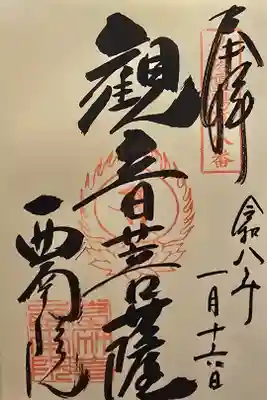 奉拝
令和八年
一月十六日
観音菩薩
西南院